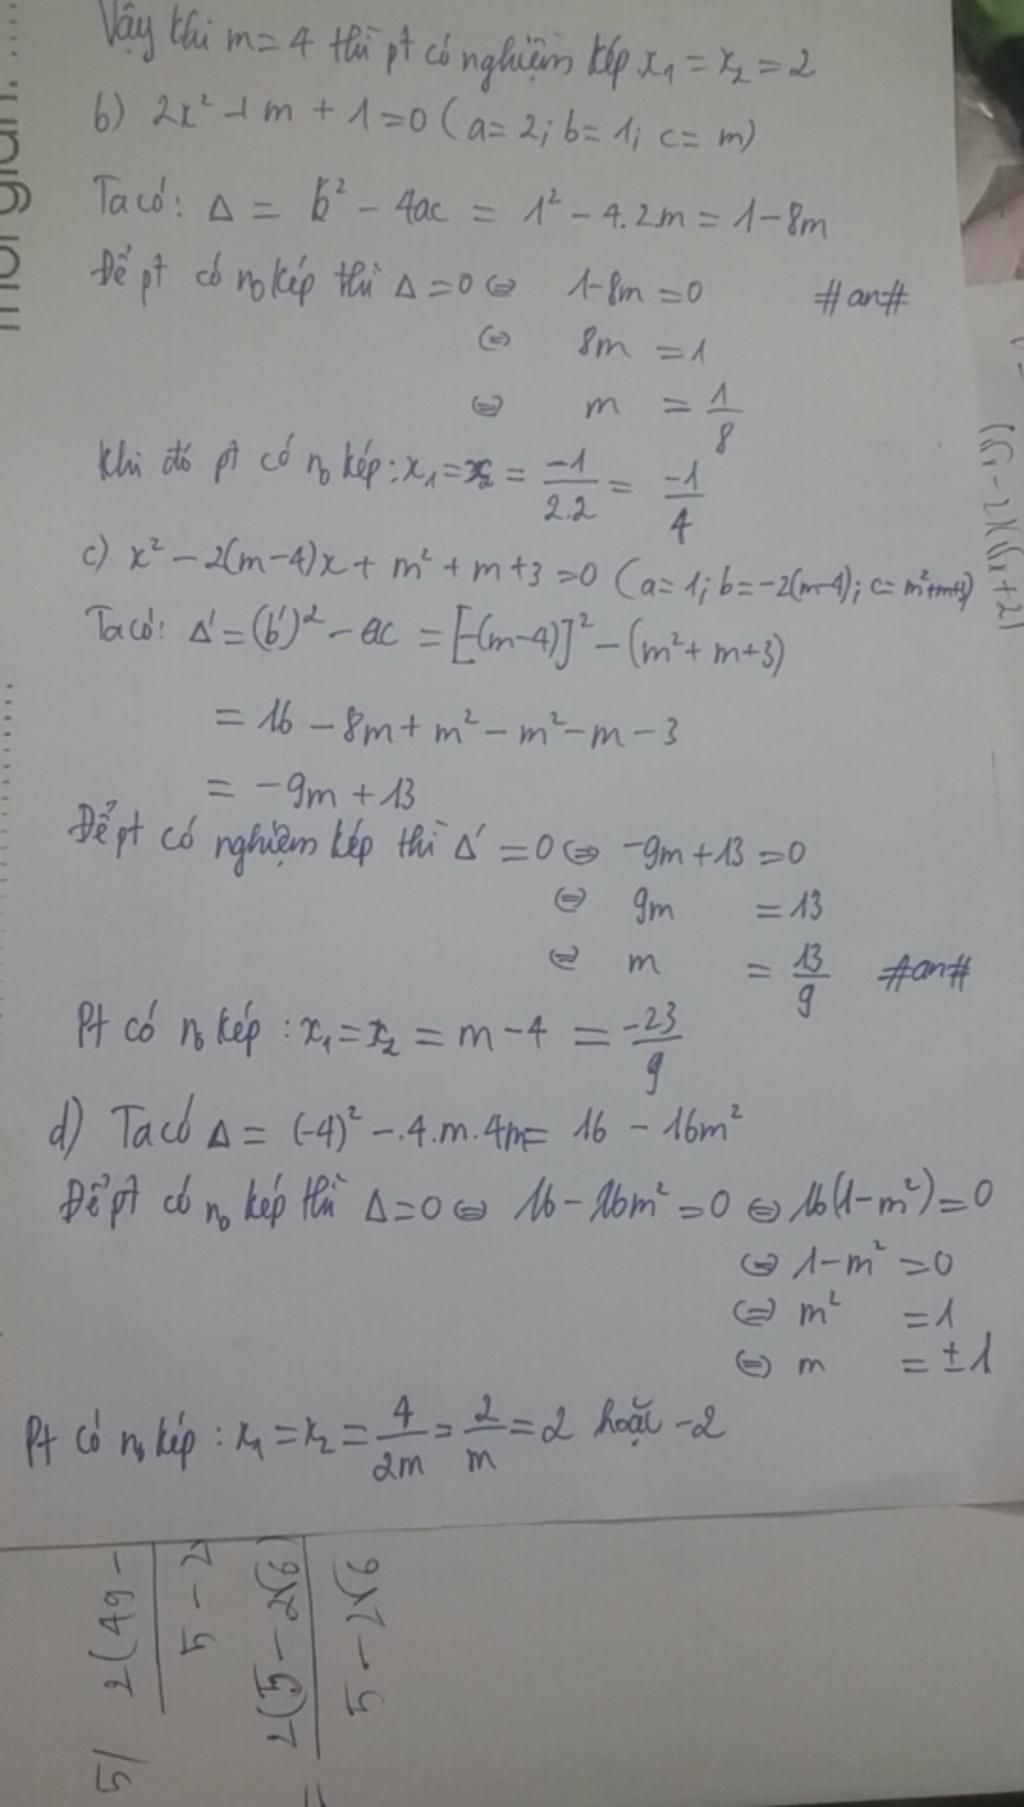 Vậy khi m = 4 thì pt có nghiệm kép x₁ = x₂ = 2
b) 2x² + m + 1 = 0 (a = 2; b = 1; c = m)
Ta có: Δ = b² - 4ac = 1² - 4.2m = 1 - 8m
Để pt có n₀ kép thì Δ = 0 ⇔ 1 - 8m = 0 #an#
⇔ 8m = 1
⇔ m = 1/8
Khi đó pt có n₀ kép: x₁ = x₂ = -1/2.2 = -1/4
c) x² - 2(m-4)x + m² + m + 3 = 0 (a = 1; b = -2(m-4); c = m²+m+3)
Ta có: Δ' = (b')² - ac = [-(m-4)]² - (m² + m + 3)
= 16 - 8m + m² - m² - m - 3
= -9m + 13
Để pt có nghiệm kép thì Δ' = 0 ⇔ -9m + 13 = 0
⇔ 9m = 13
⇔ m = 13/9 #an#
Pt có n₀ kép: x₁ = x₂ = m - 4 = -23/9
d) Ta có Δ = (-4)² - .4.m.4m = 16 - 16m²
Để pt có n₀ kép thì Δ = 0 ⇔ 16 - 16m² = 0 ⇔ 16(1 - m²) = 0
⇔ 1 - m² = 0
⇔ m² = 1
⇔ m = ±1
Pt có n₀ kép: x₁ = x₂ = 4/2m = 2/m = 2 hoặc -2
5/ 2(49 -
5 - 2
2(5 - 2√6)
5 - 2√6